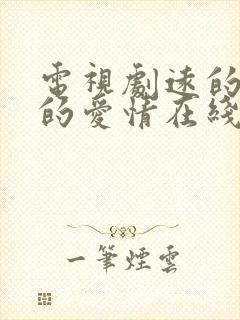 電視劇速的
的愛情在綫
一筆煙雲